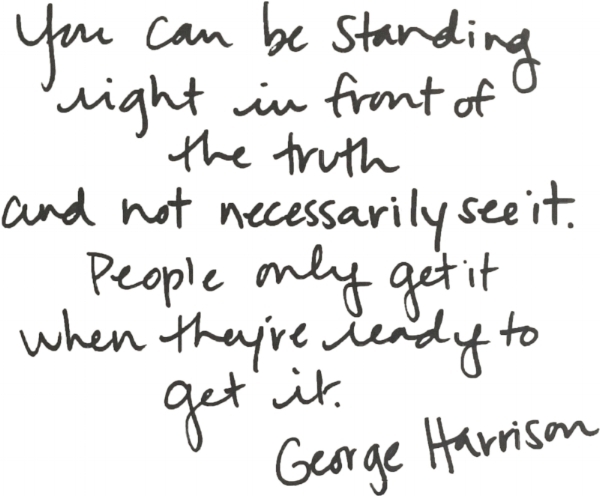 You can be standing
right in front of
the truth
and not necessarily see it.
People only get it
when they're ready to
get it.
George Harrison